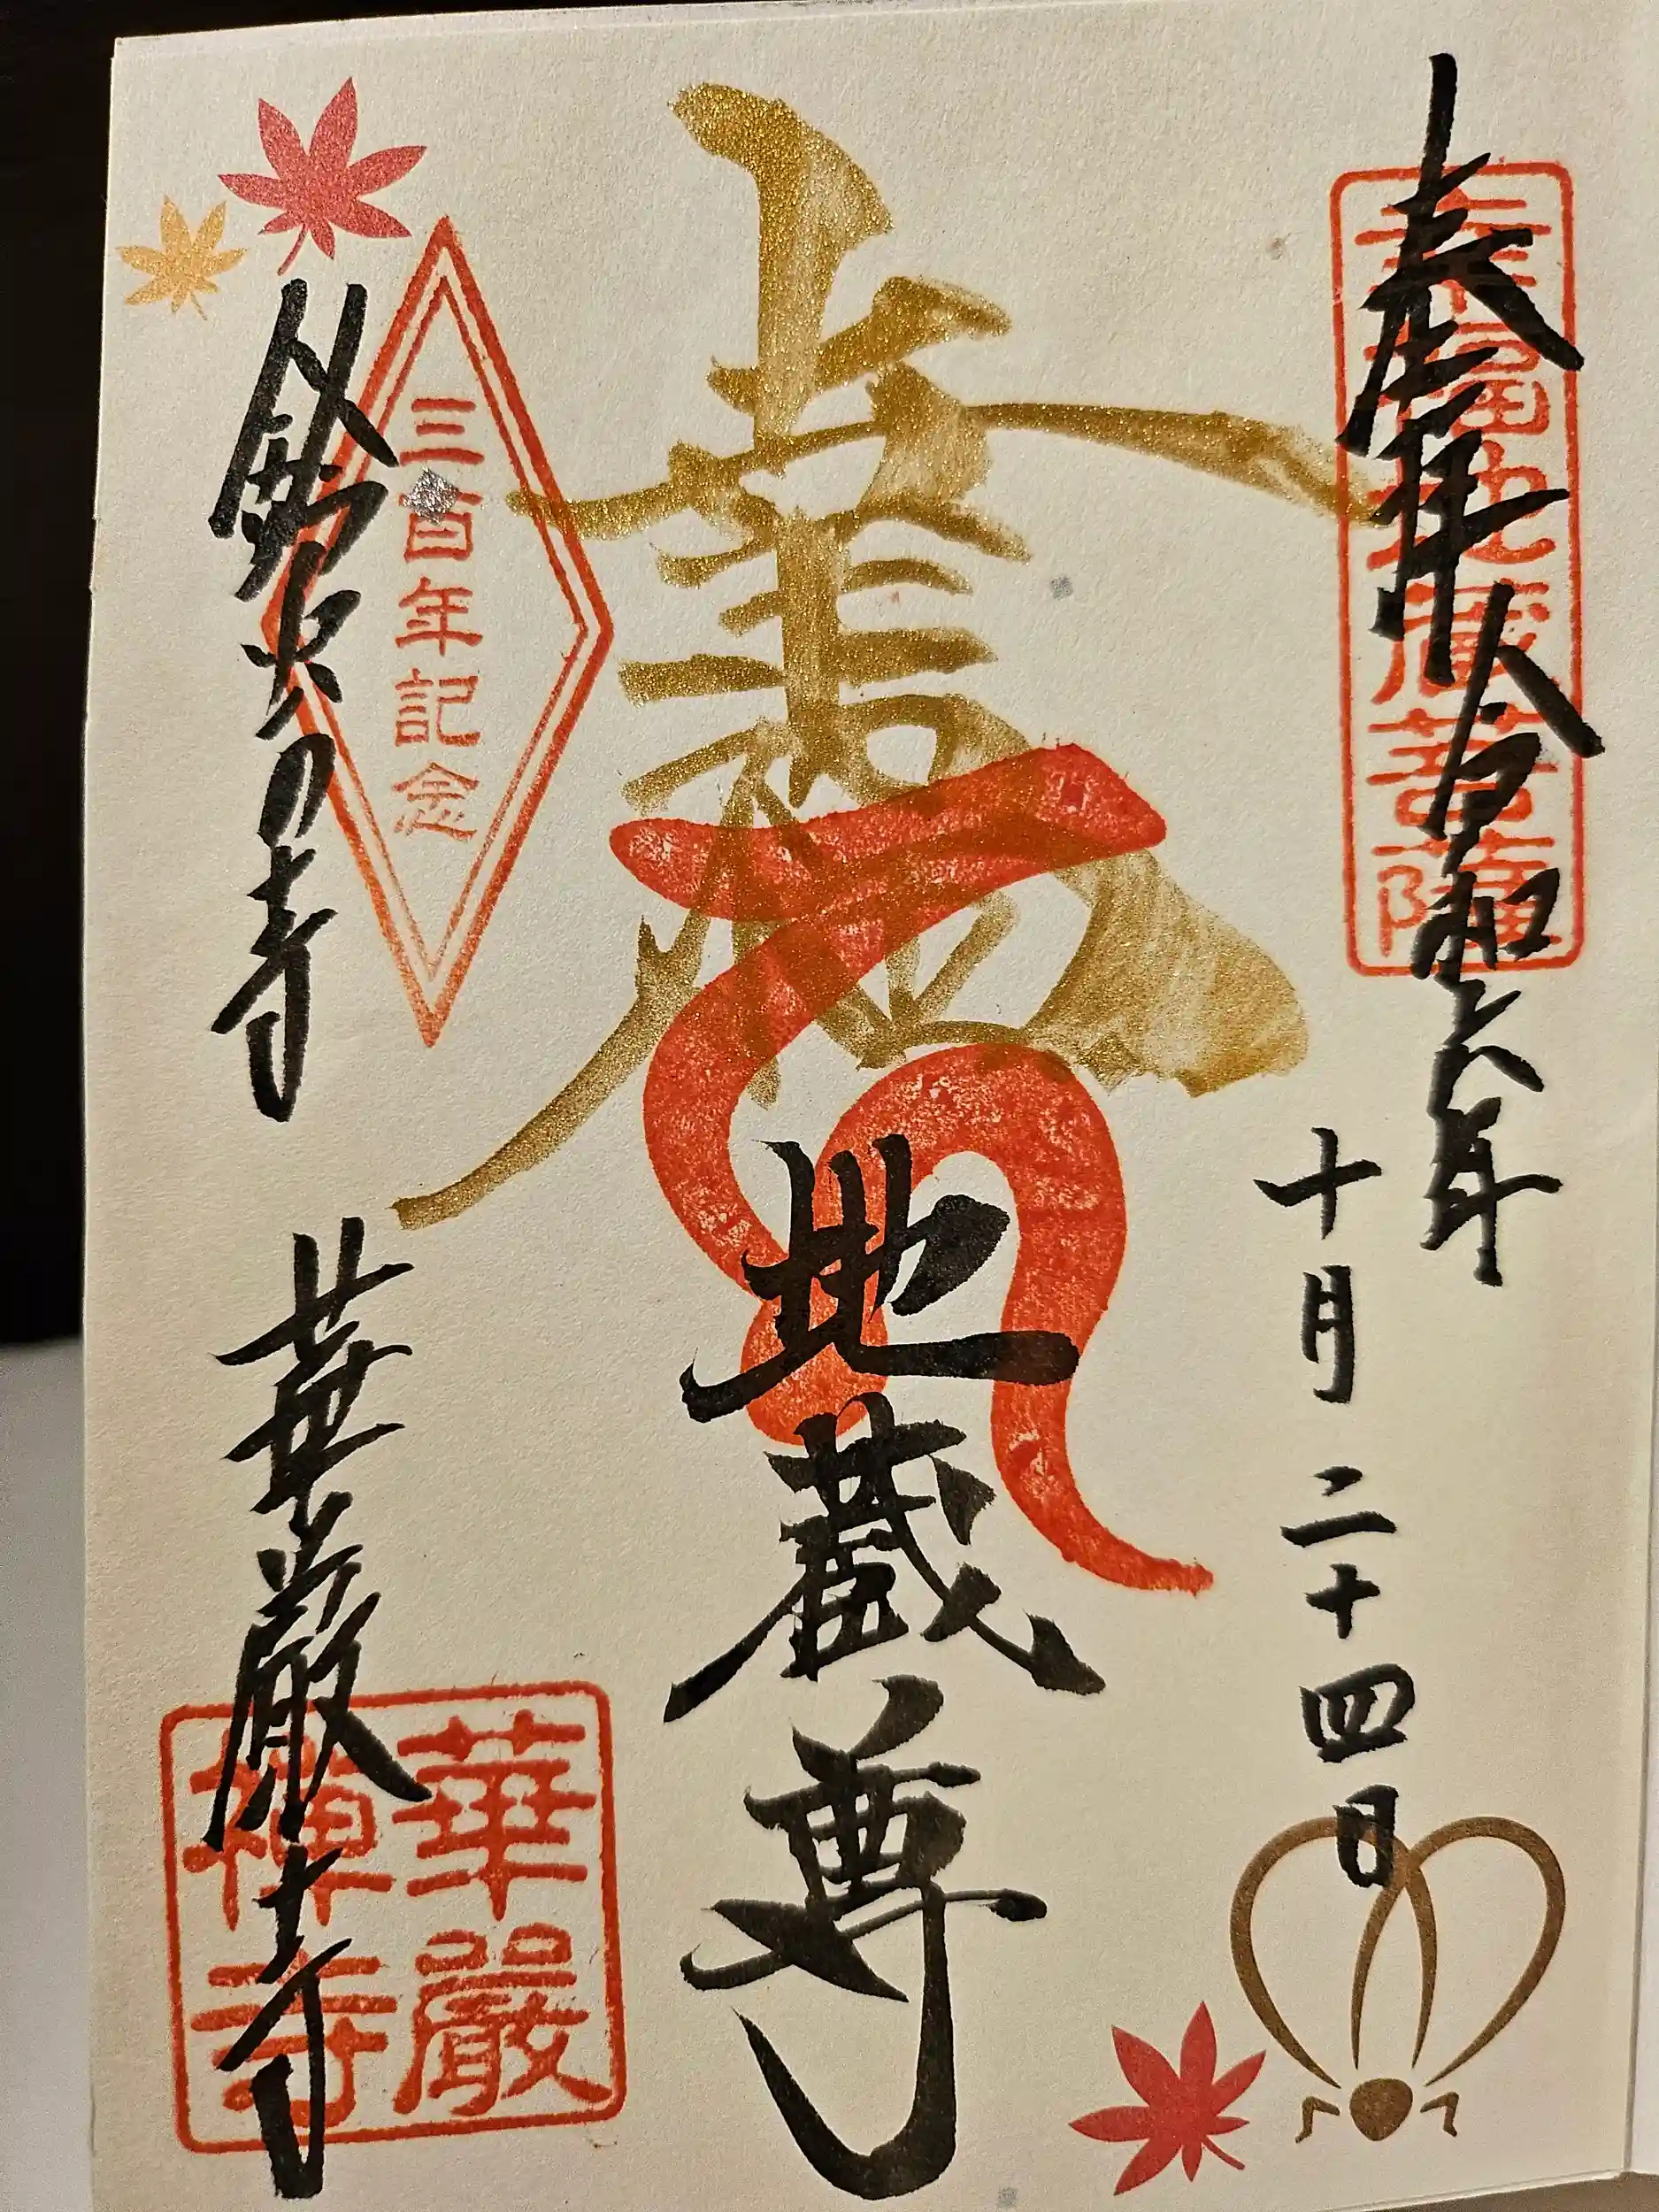 奉拝 令和六年
十月二十四日
幸福地蔵菩薩
地蔵尊
三百年記念
鈴虫の寺 華厳寺
華嚴
禪寺